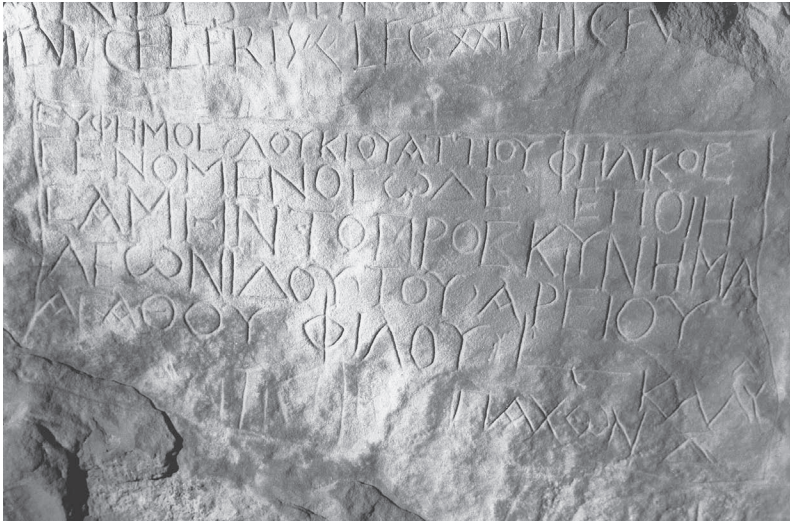 CELERIS LEG XXIV HIC FV
ΕΥΦΗΜΟΣ ΛΟΥΚΙΟΥ ΑΤΤΙΟΥ ΦΗΛΙΚΟΣ
ΓΕΝΟΜΕΝΟΣ ΩΔΕ ΕΠΟΙΗ
ΣΑΜΗΝ ΤΟ ΠΡΟΣΚΥΝΗΜΑ
ΛΕΩΝΙΔΟΥ ΤΟΥ ΑΡΕΙΟΥ
ΑΓΑΘΟΥ ΦΙΛΟΥ
ΠΑΧΩΝ